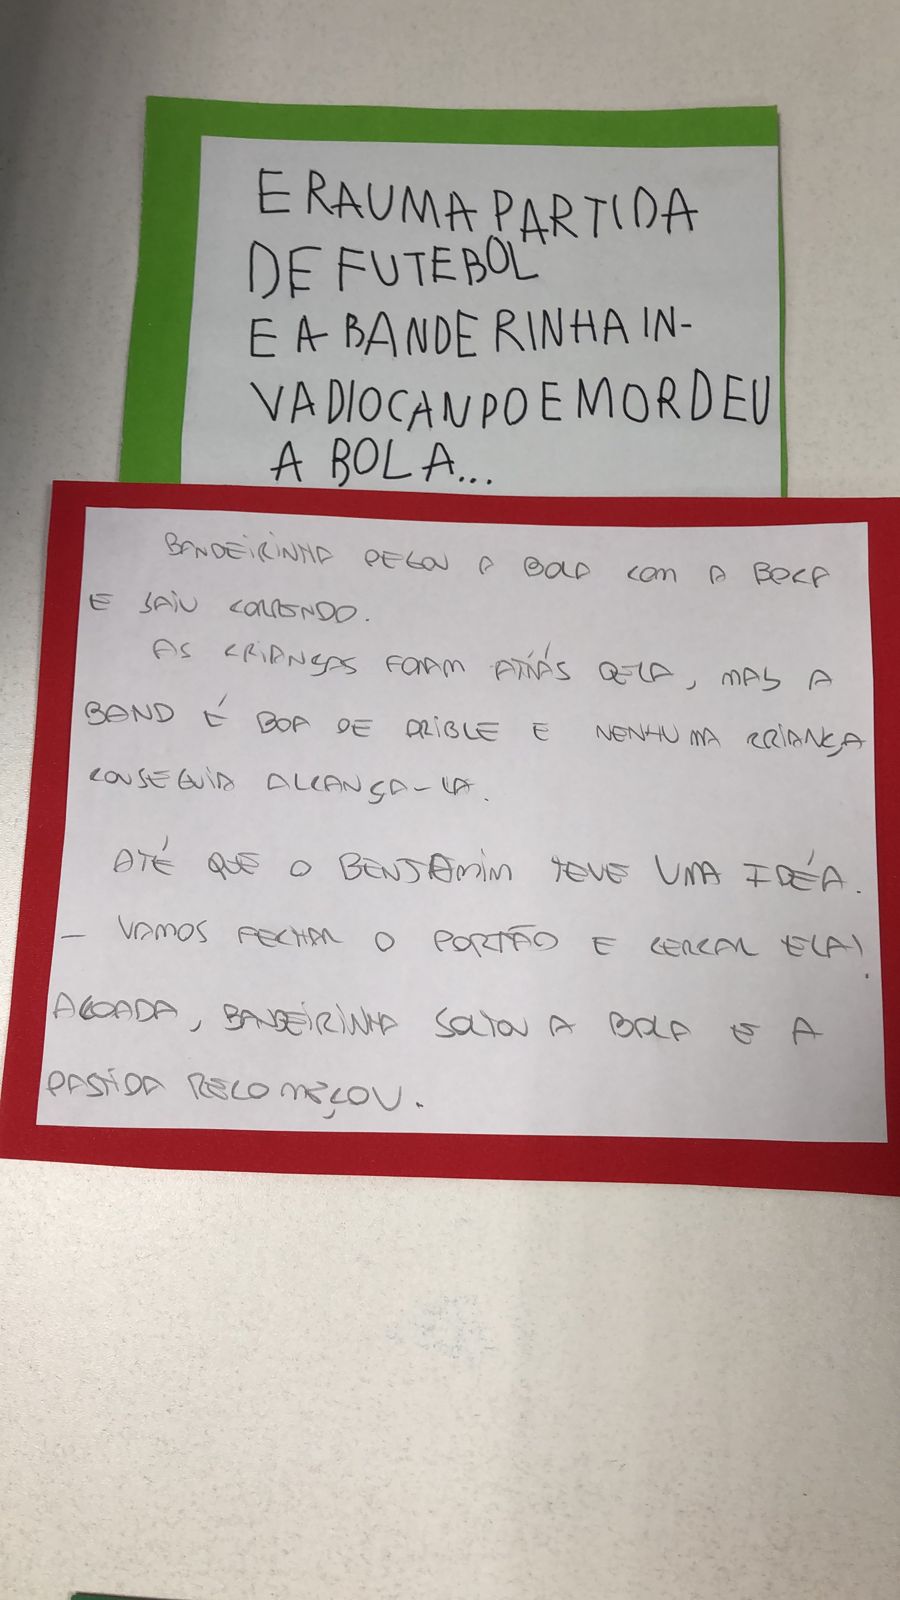 ERA UMA PARTIDA
DE FUTEBOL
E A BANDERINHA IN-
VADIO CANPO E MORDEU
A BOLA...
BANDEIRINHA PEGOU A BOLA COM A BOCA
E SAIU CORRENDO.
AS CRIANÇAS FORAM ATRÁS DELA, MAS A
BAND É BOA DE DRIBLE E NENHUMA CRIANÇA
CONSEGUIA ALCANÇA-LA.
ATÉ QUE O BENJAMIM TEVE UMA IDÉA.
- VAMOS FECHAR O PORTÃO E CERCAR ELA!
ACOADA, BANDEIRINHA SOLTOU A BOLA E A
PARTIDA RECOMEÇOU.